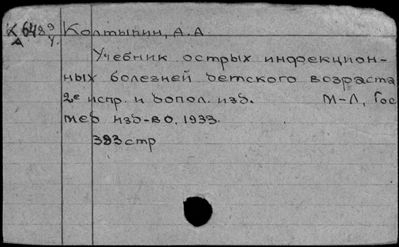 К 6489 Колтыпин, А.А.
А у.
Учебник острых инфекцион-
ных болезней детского возраста
2е испр. и допол. изд. М-Л, Гос
мед изд-во, 1933.
383 стр